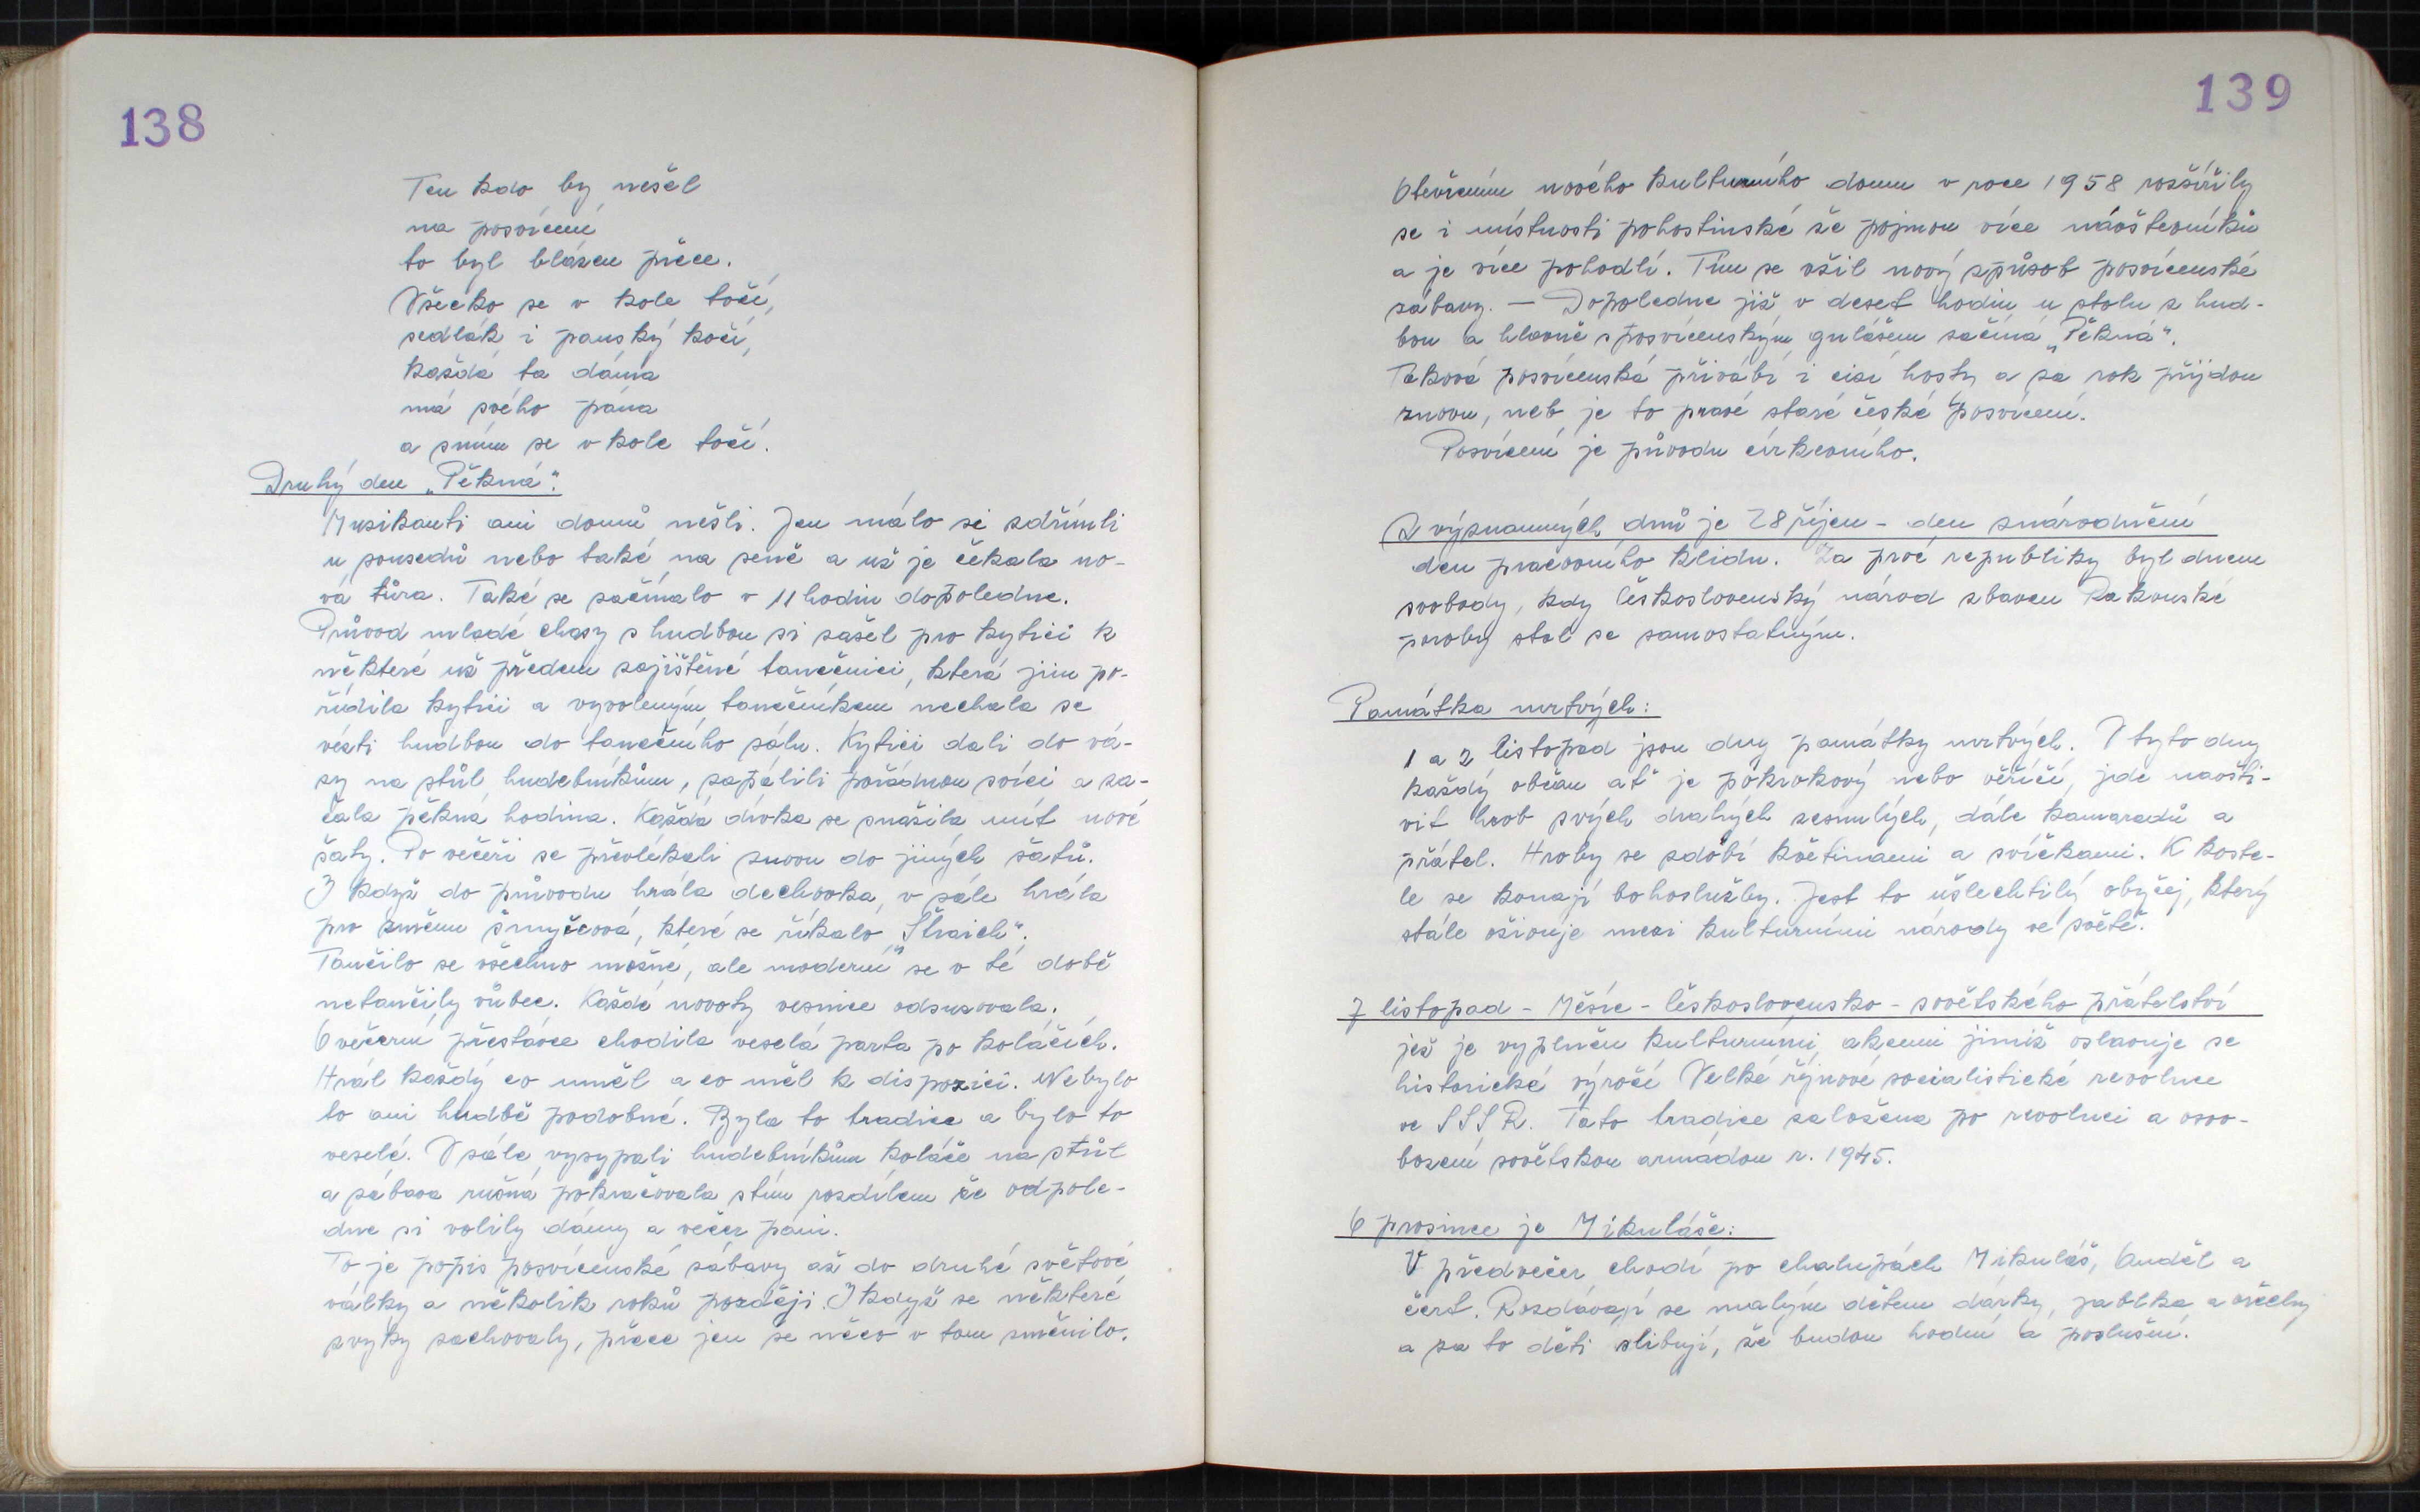 138
Ten kdo by nešel
na posvícení
to byl blázen přece.
Všecko se v kole točí,
sedlák i panský kočí,
každá ta dáma
má svého pána
a sním se v kole točí.
Druhý den „Pěkná“.
Muzikanti ani domů nešli. Jen málo si zdřímli
u sousedů nebo také na seně a už je čekala no-
vá tůra. Také se začínalo v 11 hodin dopoledne.
Průvod mladé chasy s hudbou si zašel pro kytici k
některé už předem zajištěné tanečnici, která jim po-
řídila kytici a vyvoleným tanečníkem nechala se
vésti hudbou do tanečního sálu. Kytici dali do vá-
zy na stůl hudebníkům, zapálili pořádnou svíci a za-
čala pěkná hodina. Každá dívka se snažila mít nové
šaty. Po večeři se převlékali znovu do jiných šatů.
I když do průvodu hrála dechovka, v sále hrála
pro změnu šmyčcová, které se říkalo „Štraich“.
Tančilo se všechno možné, ale moderní se v té době
netančily vůbec. Každé novoty vesnice odsuzovala.
O večerní přestávce chodila veselá parta po koláčích.
Hrál každý co uměl a co měl k dispozici. Nebylo
to ani hudbě podobné. Byla to tradice a bylo to
veselé. V sále vysypali hudebníkům koláče na stůl
a zábava rušná pokračovala stím rozdílem že odpole-
dne si volily dámy a večer páni.
To je popis posvícenské zábavy až do druhé světové
války a několik roků později. I když se některé
zvyky zachovaly, přece jen se něco v tom změnilo.
139
Otevřením nového kulturního domu v roce 1958 rozšířily
se i místnosti pohostinské že pojmou více návštevníků
a je více pohodlí. Tím se vžil nový způsob posvícenské
zábavy. — Dopoledne již v deset hodin u stolu z hud-
bou a hlavně sposvícenským gulášem začíná „Pěkná“.
Taková posvícenská přivábí i cizí hosty a za rok přijdou
znovu, neb je to pravé staré české posvícení.
Posvícení je původu církevního.
Z významných dnů je 28 říjen - den znárodnění
den pracovního klidu. Za prvé republiky byl dnem
svobody, kdy Československý národ zbaven Rakouské
poroby stal se samostatným.
Památka mrtvých:
1 a 2 listopad jsou dny památky mrtvých. V tyto dny
každý občan ať je pokrokový nebo věřící, jde navští-
vit hrob svých drahých zesnulých, dále kamaradů a
přátel. Hroby se zdobí květinami a svíčkami. K koste-
le se konají bohoslužby. Jest to ušlechtilý obyčej, který
stále oživuje mezi kulturními národy ve světě.
7 listopad - Měsíc - Československo - sovětského přátelství
jež je vyplněn kulturními akcemi jimiž oslavuje se
historické výročí Velké říjnové socialistické revoluce
ve SSSR. Tato tradice založena po revoluci a osvo-
bození sovětskou armádou r. 1945.
6 prosince je Mikuláše:
V předvečer chodí po chalupách Mikuláš, Anděl a
čert. Rozdávají se malým dětem dárky, jablka a ořechy
a za to děti slibují, že budou hodní a poslušní.